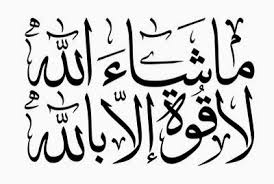 ما شَاءَ اللّٰهُ
لَا قُوَّةَ إِلَّا بِاللّٰهِ